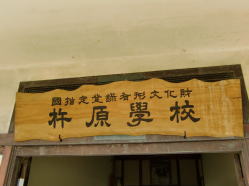 國指定登録有形文化財
杵原學校